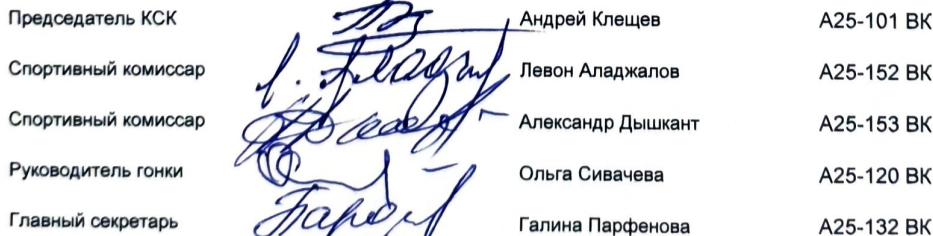 Председатель КСК Андрей Клещев А25-101 ВК
Спортивный комиссар Левон Аладжалов А25-152 ВК
Спортивный комиссар Александр Дышкант А25-153 ВК
Руководитель гонки Ольга Сивачева А25-120 ВК
Главный секретарь Галина Парфенова А25-132 ВК